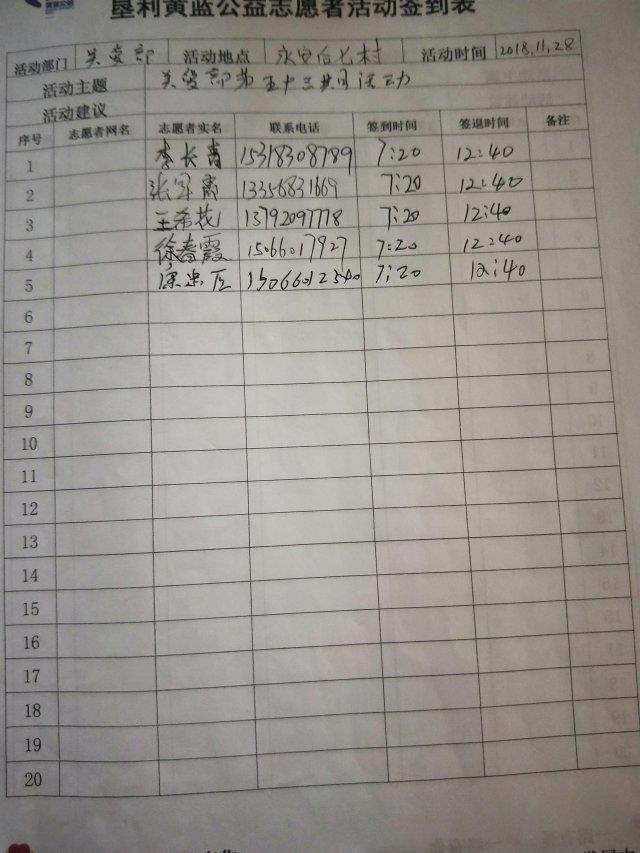 垦利黄蓝公益志愿者活动签到表
活动部门 关爱部 活动地点 永安后七村 活动时间 2018.11.28
活动主题 关爱部第五十三期活动
活动建议
序号 志愿者网名 志愿者实名 联系电话 签到时间 签退时间 备注
1 李长青 15318308789 7:20 12:40
2 13356831669 7:20 12:40
3 王希花 13792097778 7:20 12:40
4 徐春霞 15066017927 7:20 12:40
5 15066012540 7:20 12:40
6
7
8
9
10
11
12
13
14
15
16
17
18
19
20